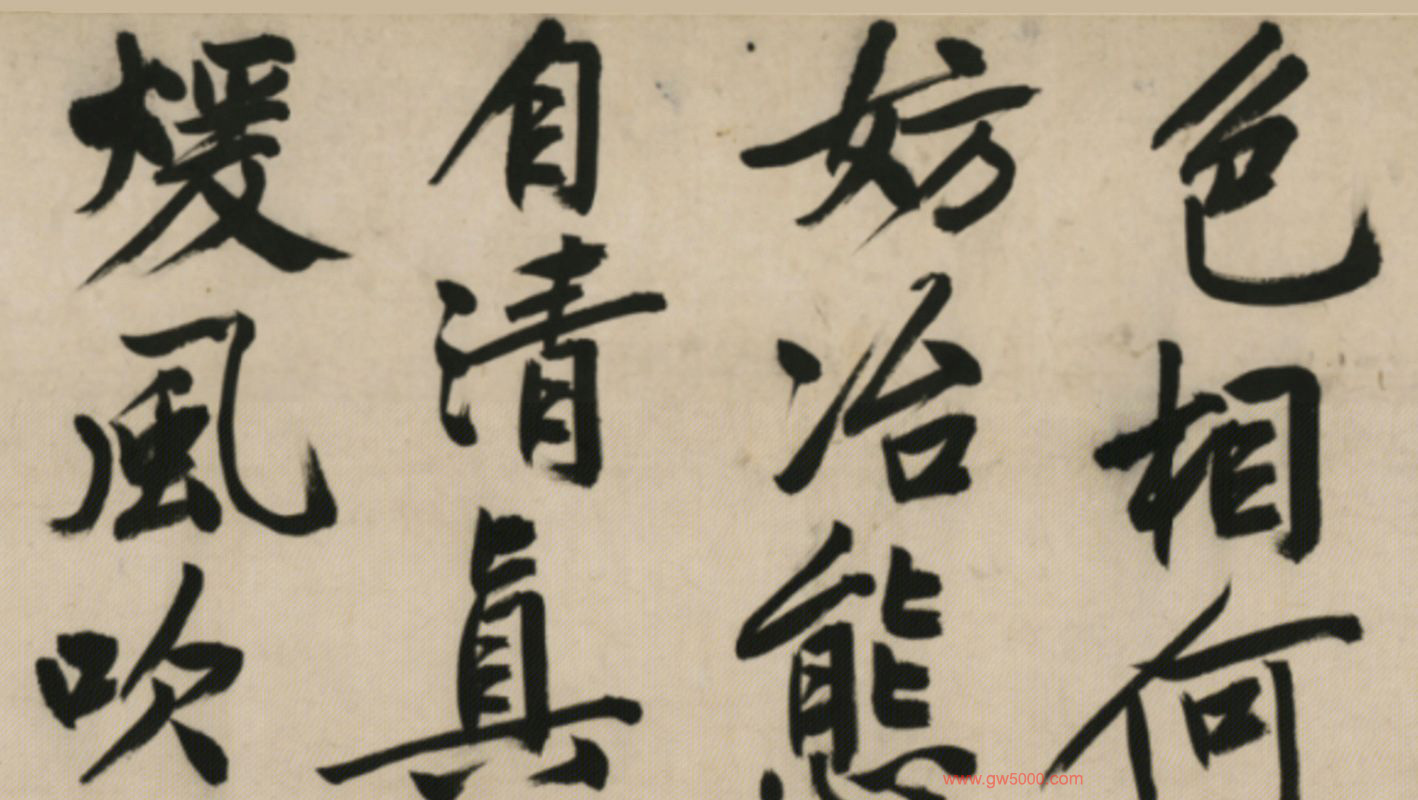 色相何
妨冶態
自清真
煖風吹
www.gw5000.com